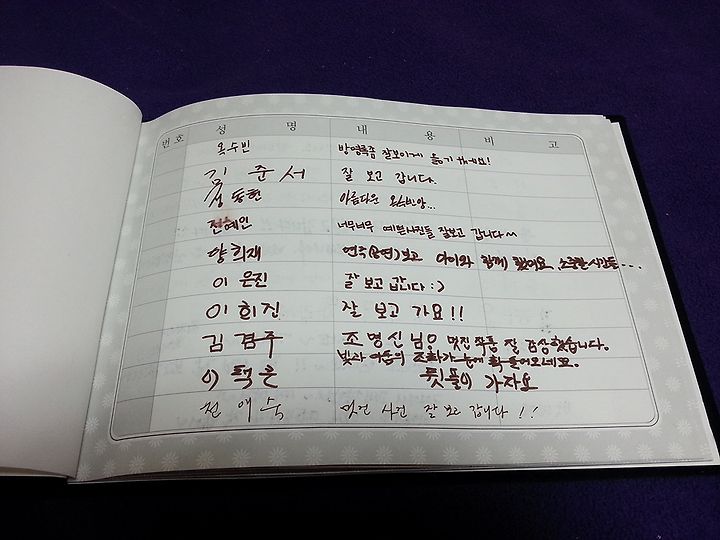 번호 성명 내용 비고
옥수빈 방명록좀 잘보이게 옮기
김준서 잘 보고 갑니다.
성동현 아름다운 옥수빈양...
전예인 너무너무 예쁜사진들 잘보고 갑니다~
양희재 보고 아이와 함께 했어요. 소중한 시간들...
이은진 잘 보고 갑니다 :)
이희진 잘 보고 가요!!
김겸주 조명신님의 멋진 작품 잘 감상했습니다.
빛과 어둠의 조화가 눈에 확 들어오네요.
이택은 뒷풀이 가자요
전애숙 멋진 사진 잘 보고 갑니다!!